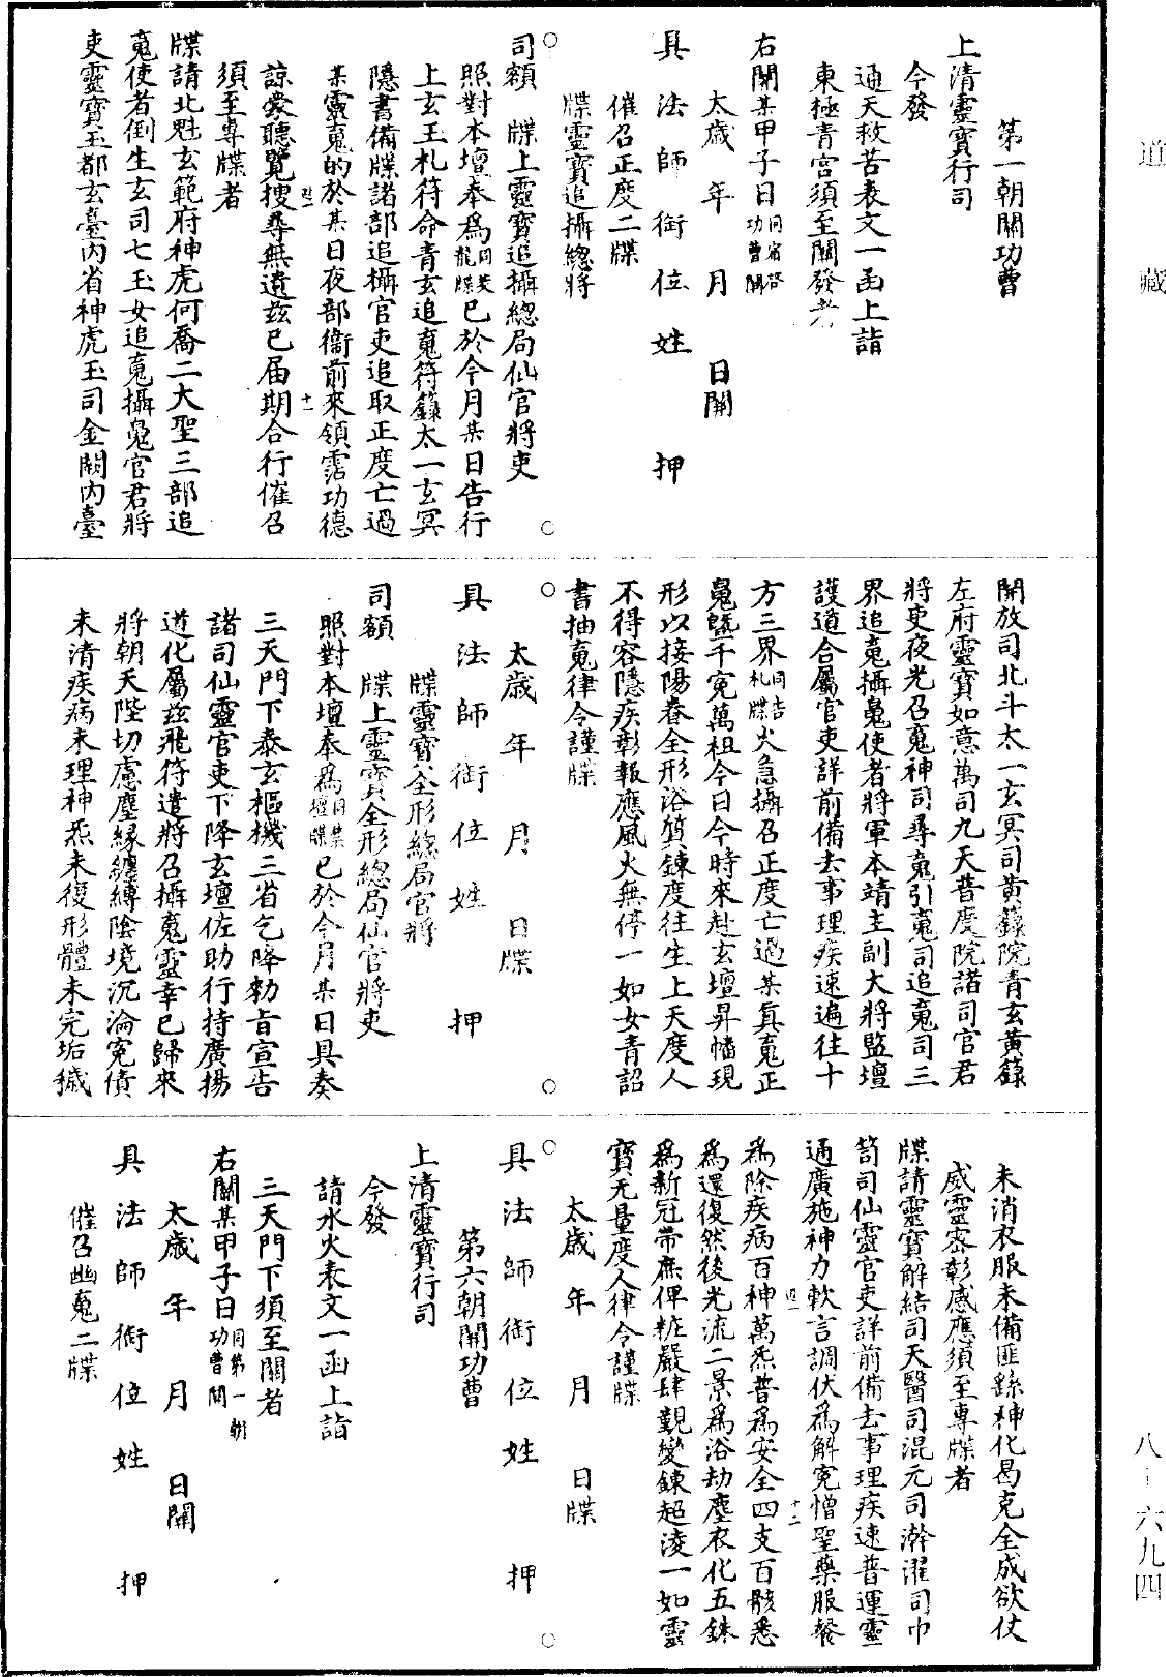 道藏
第一朝關功曹
上清靈寶行司
今發
通天救苦表文一函上詣
東極青宮須至關發者
右關某甲子日同宿啓功曹關
太歲年月日關
具法師銜位姓押
催召正度二牒
牒靈寶追攝總將
司額牒上靈寶追攝總局仙官將吏
照對本壇奉爲同茭龍牒已於今月某日告行
上玄玉札符命青玄追䰟符籙太一玄冥
隱書備牒諸部追攝官吏追取正度亡過
某靈䰟的於某日夜部衞前來領霑功德
諒衆聽覽搜尋無遺茲已届期合行催召
須至專牒者
牒請北魁玄範府神虎何喬二大聖三部追
䰟使者倒生玄司七玉女追䰟攝䰟官君將
吏靈寶玉都玄臺內省神虎玉司金闕內臺
開放司北斗太一玄冥司黄籙院青玄黄籙
左府靈寶如意萬司九天普度院諸司官君
將吏夜光召䰟神司尋䰟引䰟司追䰟司三
界追䰟攝䰟使者將軍本靖主副大將監壇
護道合屬官吏詳前備去事理疾速遍往十
方三界同告札牒火急攝召正度亡過某真䰟正
䰟曁千寃萬祖今日今時來赴玄壇昇幡現
形以接陽眷全形浴質鍊度往生上天度人
不得容隱疾彰報應風火無停一如女青詔
書抽䰟律令謹牒
太歲年月日牒
具法師銜位姓押
牒靈寶全形總局官將
司額牒上靈寶全形總局仙官將吏
照對本壇奉爲同禁壇牒已於今月某日具奏
三天門下泰玄樞機三省乞降勑旨宣告
諸司仙靈官吏下降玄壇佐助行持廣揚
道化屬茲飛符遣將召攝䰟靈幸已歸來
將朝天陛切慮塵緣纏縛陰境沉淪寃債
未清疾病未理神炁未復形體未完垢穢
未消衣服未備匪繇神化曷克全成欲仗
威靈密彰感應須至專牒者
牒請靈寶解結司天醫司混元司澣濯司巾
笥司仙靈官吏詳前備去事理疾速普運靈
通廣施神力軟言調伏爲解寃憎聖藥服餐
爲除疾病百神萬炁普爲安全四支百骸悉
爲還復然後光流二景爲浴劫塵衣化五銖
爲新冠帶庶俾粧嚴肆覲變鍊超淩一如靈
寶无量度人律令謹牒
太歲年月日牒
具法師銜位姓押
第六朝關功曹
上清靈寶行司
今發
請水火表文一函上詣
三天門下須至關者
右關某甲子日同第一朝功曹關
太歲年月日關
具法師銜位姓押
催召幽䰟二牒
八–六九四